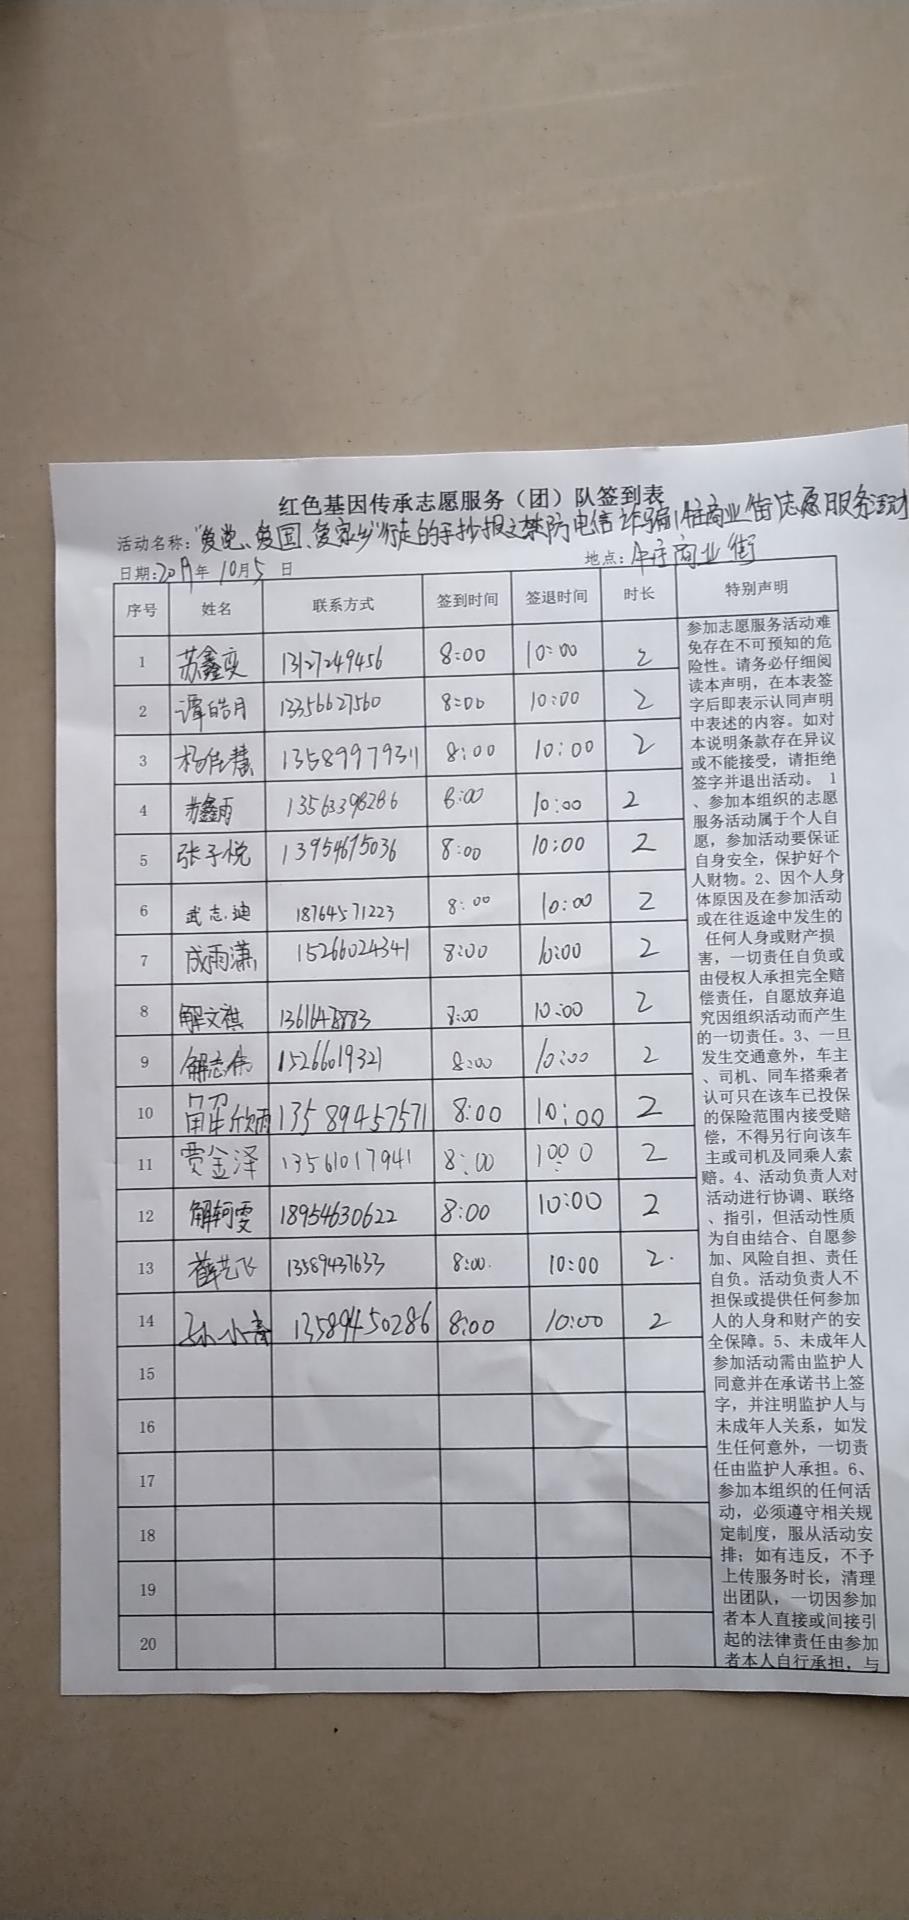 红色基因传承志愿服务（团）队签到表
活动名称："爱党、爱国、爱家乡"行走的手抄报之禁防电信诈骗(牛庄商业街)志愿服务活动
日期:2019年 10月5日 地点: 牛庄商业街
序号 姓名 联系方式 签到时间 签退时间 时长 特别声明
1 苏鑫奕 13127249456 8:00 10:00 2
2 谭皓月 13356627560 8:00 10:00 2
3 杨佳慧 13589979311 8:00 10:00 2
4 苏鑫雨 13563398286 8:00 10:00 2
5 张子悦 13954675036 8:00 10:00 2
6 武志迪 18764571223 8:00 10:00 2
7 成雨潇 15266024341 8:00 10:00 2
8 解文祺 8:00 10:00 2
9 解志伟 15266019321 8:00 10:00 2
10 解欣雨 13589457571 8:00 10:00 2
11 贾金泽 13561017941 8:00 10:00 2
12 解轲雯 18954630622 8:00 10:00 2
13 薛艺飞 13589437633 8:00 10:00 2
14 孙小音 13589450286 8:00 10:00 2
15
16
17
18
19
20
参加志愿服务活动难
免存在不可预知的危
险性。请务必仔细阅
读本声明，在本表签
字后即表示认同声明
中表述的内容。如对
本说明条款存在异议
或不能接受，请拒绝
签字并退出活动。 1
、参加本组织的志愿
服务活动属于个人自
愿，参加活动要保证
自身安全，保护好个
人财物。2、因个人身
体原因及在参加活动
或在往返途中发生的
任何人身或财产损
害，一切责任自负或
由侵权人承担完全赔
偿责任，自愿放弃追
究因组织活动而产生
的一切责任。3、一旦
发生交通意外，车主
、司机、同车搭乘者
认可只在该车已投保
的保险范围内接受赔
偿，不得另行向该车
主或司机及同乘人索
赔。4、活动负责人对
活动进行协调、联络
、指引，但活动性质
为自由结合、自愿参
加、风险自担、责任
自负。活动负责人不
担保或提供任何参加
人的人身和财产的安
全保障。5、未成年人
参加活动需由监护人
同意并在承诺书上签
字，并注明监护人与
未成年人关系，如发
生任何意外，一切责
任由监护人承担。6、
参加本组织的任何活
动，必须遵守相关规
定制度，服从活动安
排；如有违反，不予
上传服务时长，清理
出团队，一切因参加
者本人直接或间接引
起的法律责任由参加
者本人自行承担，与